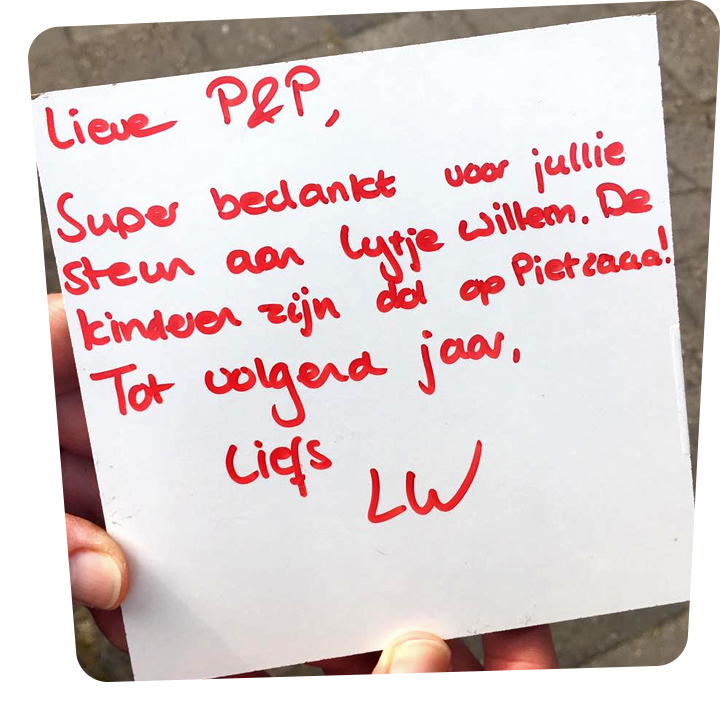 Lieve P&P,
Super bedankt voor jullie
steun aan Lytje Willem. De
kinderen zijn dol op Pietzaaa!
Tot volgend jaar,
Liefs
LW